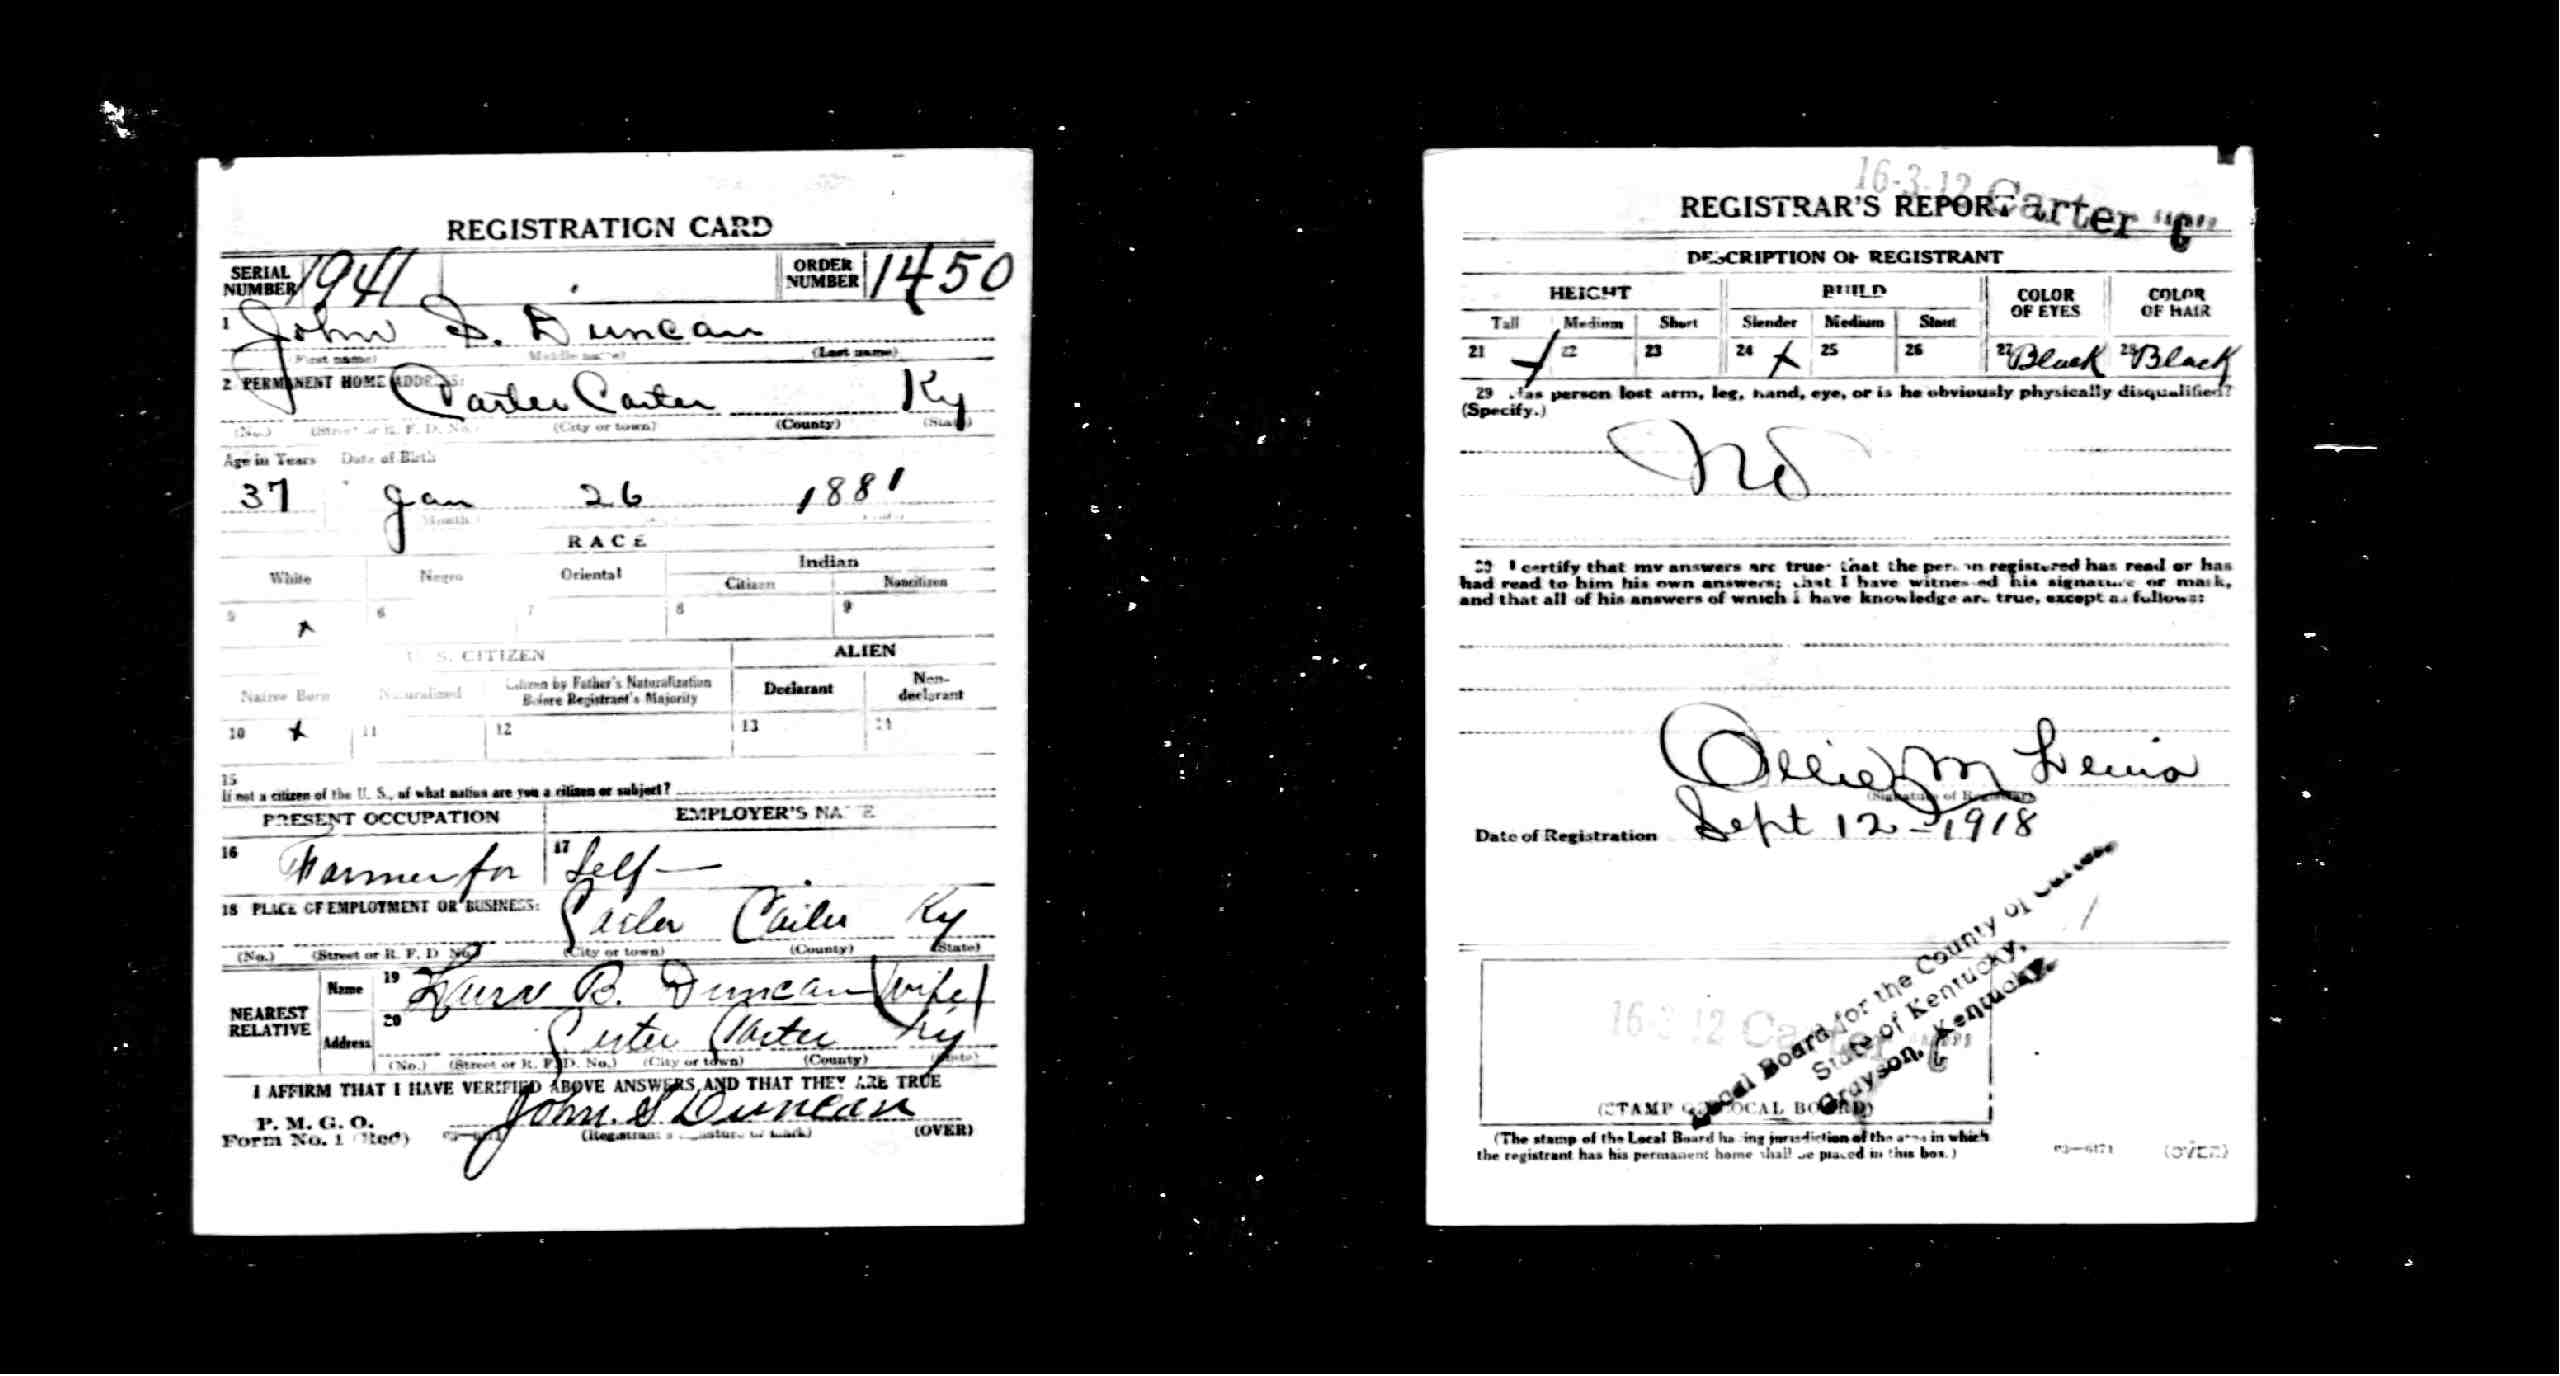 REGISTRATION CARD
SERIAL NUMBER 1941 ORDER NUMBER 1450
1 John S. Duncan
(First name) (Middle name) (Last name)
2 PERMANENT HOME ADDRESS: Carter Carter Ky
(No.) (Street or R. F. D. No.) (City or town) (County) (State)
Age in Years Date of Birth
37 Jan 26 1881
(Month.)
RACE
White Negro Oriental Indian
Citizen Noncitizen
5 x 6 7 8 9
U. S. CITIZEN ALIEN
Native Born Naturalized Citizen by Father's Naturalization Before Registrant's Majority Declarant Non-declarant
10 x 11 12 13 14
15
If not a citizen of the U. S., of what nation are you a citizen or subject?
PRESENT OCCUPATION EMPLOYER'S NAME
16 Farmer for 17 Self
18 PLACE OF EMPLOYMENT OR BUSINESS: Carter Carter Ky
(No.) (Street or R. F. D. No.) (City or town) (County) (State)
NEAREST RELATIVE Name 19 B. Duncan (Wife)
Address 20 Carter Carter Ky
(No.) (Street or R. F. D. No.) (City or town) (County) (State)
I AFFIRM THAT I HAVE VERIFIED ABOVE ANSWERS AND THAT THEY ARE TRUE
P. M. G. O.
Form No. 1 (Red) John S Duncan
(Registrant's signature or mark) (OVER)
16-3-12 Carter "C"
REGISTRAR'S REPORT
DESCRIPTION OF REGISTRANT
HEIGHT BUILD COLOR OF EYES COLOR OF HAIR
Tall Medium Short Slender Medium Stout
21 x 22 23 24 x 25 26 27 Black 28 Black
29 Has person lost arm, leg, hand, eye, or is he obviously physically disqualified?
(Specify.)
No
30 I certify that my answers are true; that the person registered has read or has
had read to him his own answers; that I have witnessed his signature or mark,
and that all of his answers of which I have knowledge are true, except as follows:
Ollie M Lewis
(Signature of Registrar)
Date of Registration Sept 12-1918
Local Board for the County of Carter
State of Kentucky,
Grayson, Kentucky.
16-3-12 Carter "C"
(STAMP OF LOCAL BOARD)
(The stamp of the Local Board having jurisdiction of the area in which
the registrant has his permanent home shall be placed in this box.)
03—6171 (OVER)